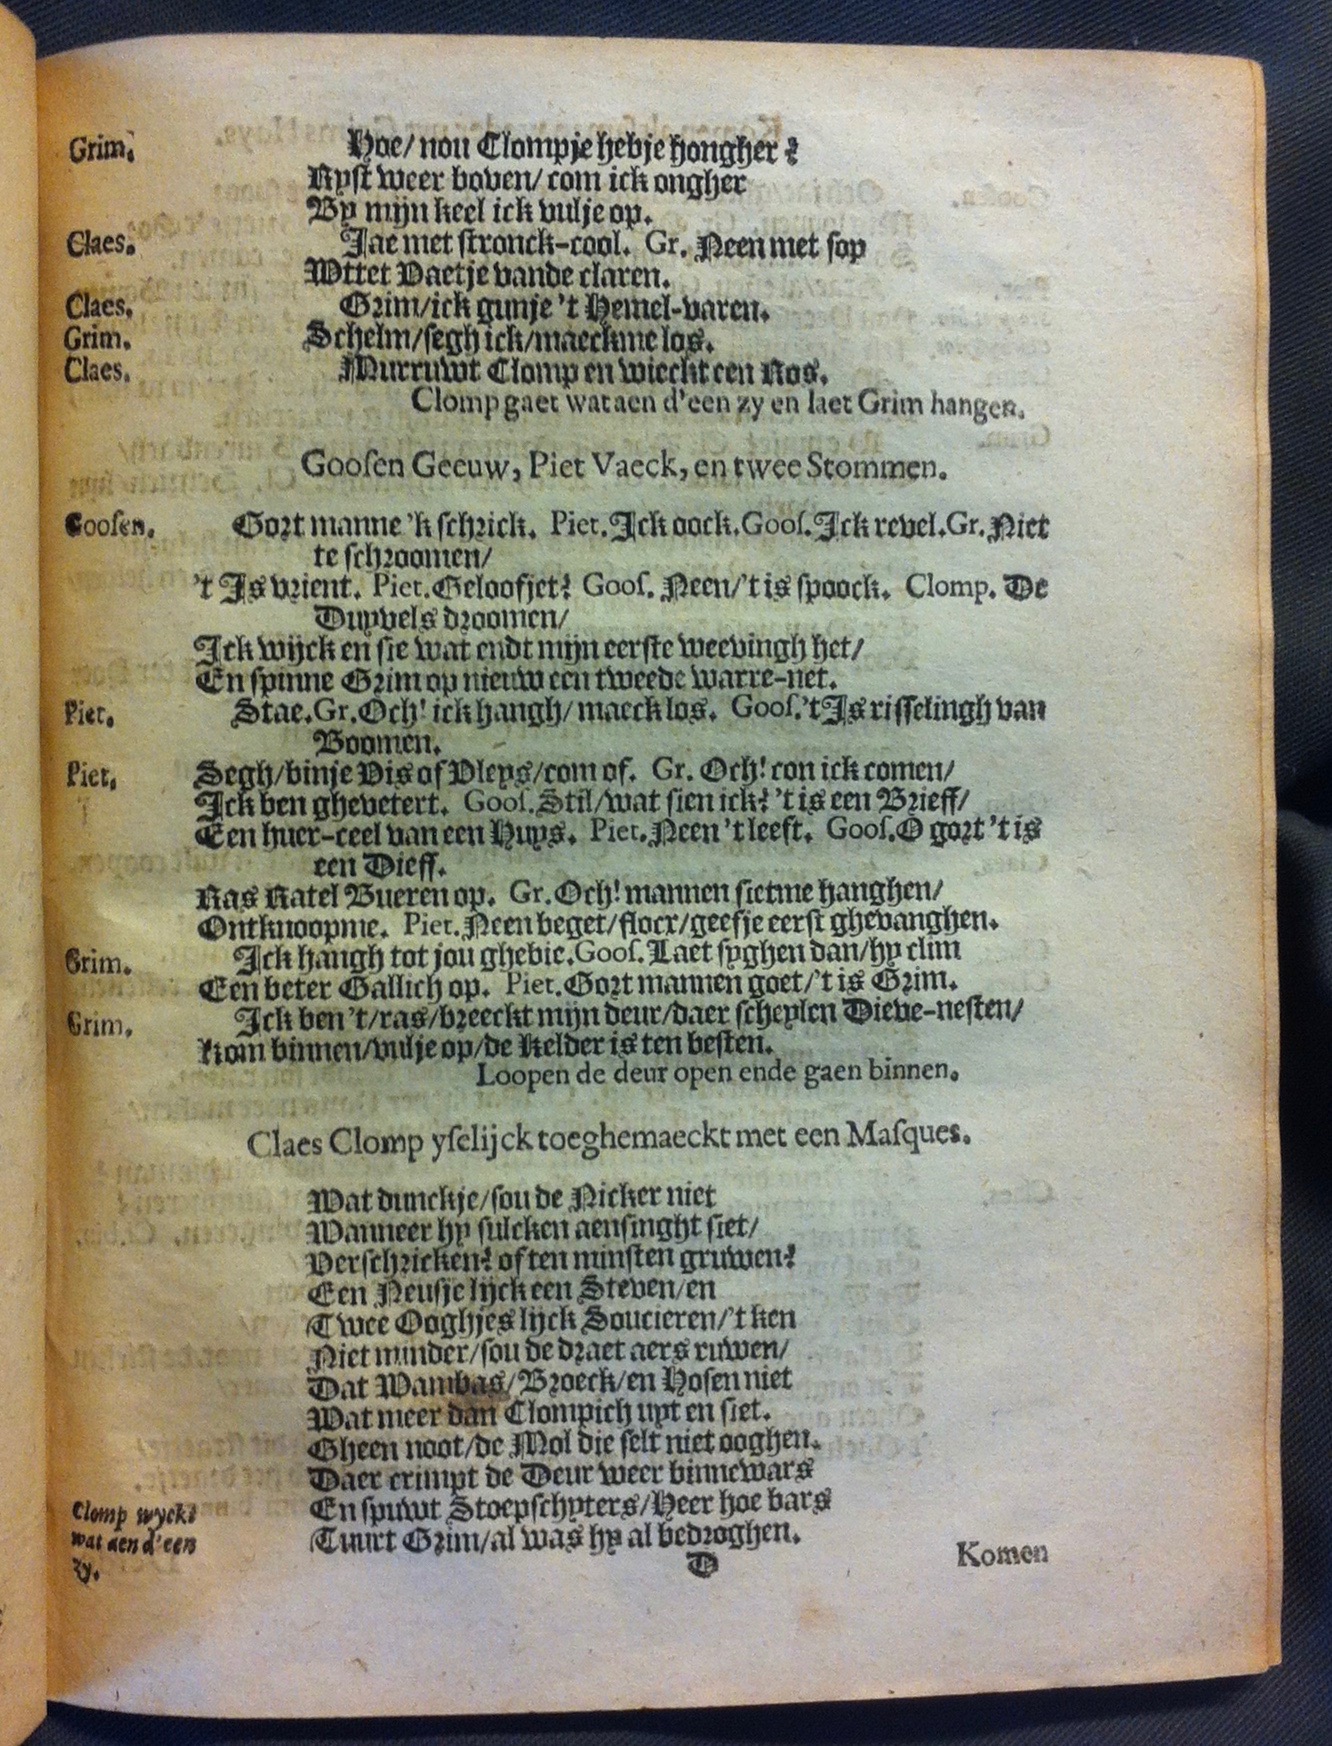 Grim. Hoe/ nou Clompje hebje hongher?
Ryst weer boven/ com ick ongher
By mijn keel ick vulje op.
Claes. Jae met stronck-cool. Gr. Neen met sop
Wttet Vaetje vande claren.
Claes. Grim/ick gunje 't Hemel-varen.
Grim. Schelm/segh ick/maeckme los.
Claes. Murruwt Clomp en wieckt een Ros.
Clomp gaet wat aen d'een zy en laet Grim hangen.
Goosen Geeuw, Piet Vaeck, en twee Stommen.
Goosen. Gort manne 'k schrick. Piet. Ick oock. Goos. Ick revel. Gr. Niet
te schroomen/
't Is vrient. Piet. Geloofjet? Goos. Neen/'t is spoock. Clomp. De
Duyvels droomen/
Ick wijck en sie wat endt mijn eerste weevingh het/
En spinne Grim op nieuw een tweede warre-net.
Piet. Stae. Gr. Och! ick hangh/ maeck los. Goos. 't Is risselingh van
Boomen.
Piet. Segh/binje Vis of Vleys/com of. Gr. Och! con ick comen/
Ick ben ghevetert. Goos. Stil/wat sien ick? 't is een Brieff/
Een huer-ceel van een Huys. Piet. Neen 't leeft. Goos. O gort 't is
een Dieff.
Ras Ratel Bueren op. Gr. Och! mannen sietme hanghen/
Ontknoopme. Piet. Neen beget/flocx/geefje eerst ghevanghen.
Grim. Ick hangh tot jou ghebie. Goos. Laet syghen dan/hy clim
Een beter Gallich op. Piet. Gort mannen goet/'t is Grim.
Grim. Ick ben't/ras/breeckt mijn deur/daer scheylen Dieve-nesten/
Kom binnen/vulje op/de Kelder is ten besten.
Loopen de deur open ende gaen binnen.
Claes Clomp yselijck toeghemaeckt met een Masques.
Wat dunckje/sou de Nicker niet
Wanneer hy sulcken aensinght siet/
Verschricken? of ten minsten gruwen?
Een Neusje lijck een Steven/en
Twee Ooghjes lijck Soucieren/'t ken
Niet minder/sou de draet aers ruwen/
Dat Wambas/Broeck/en Hosen niet
Wat meer dan Clompich uyt en siet.
Gheen noot/de Mol die selt niet ooghen.
Daer crimpt de Deur weer binnewars
En spuwt Stoepschyters/Heer hoe bars
Tuurt Grim/al was hy al bedroghen.
Clomp wyckt
wat aen d'een
zy.
D
Komen